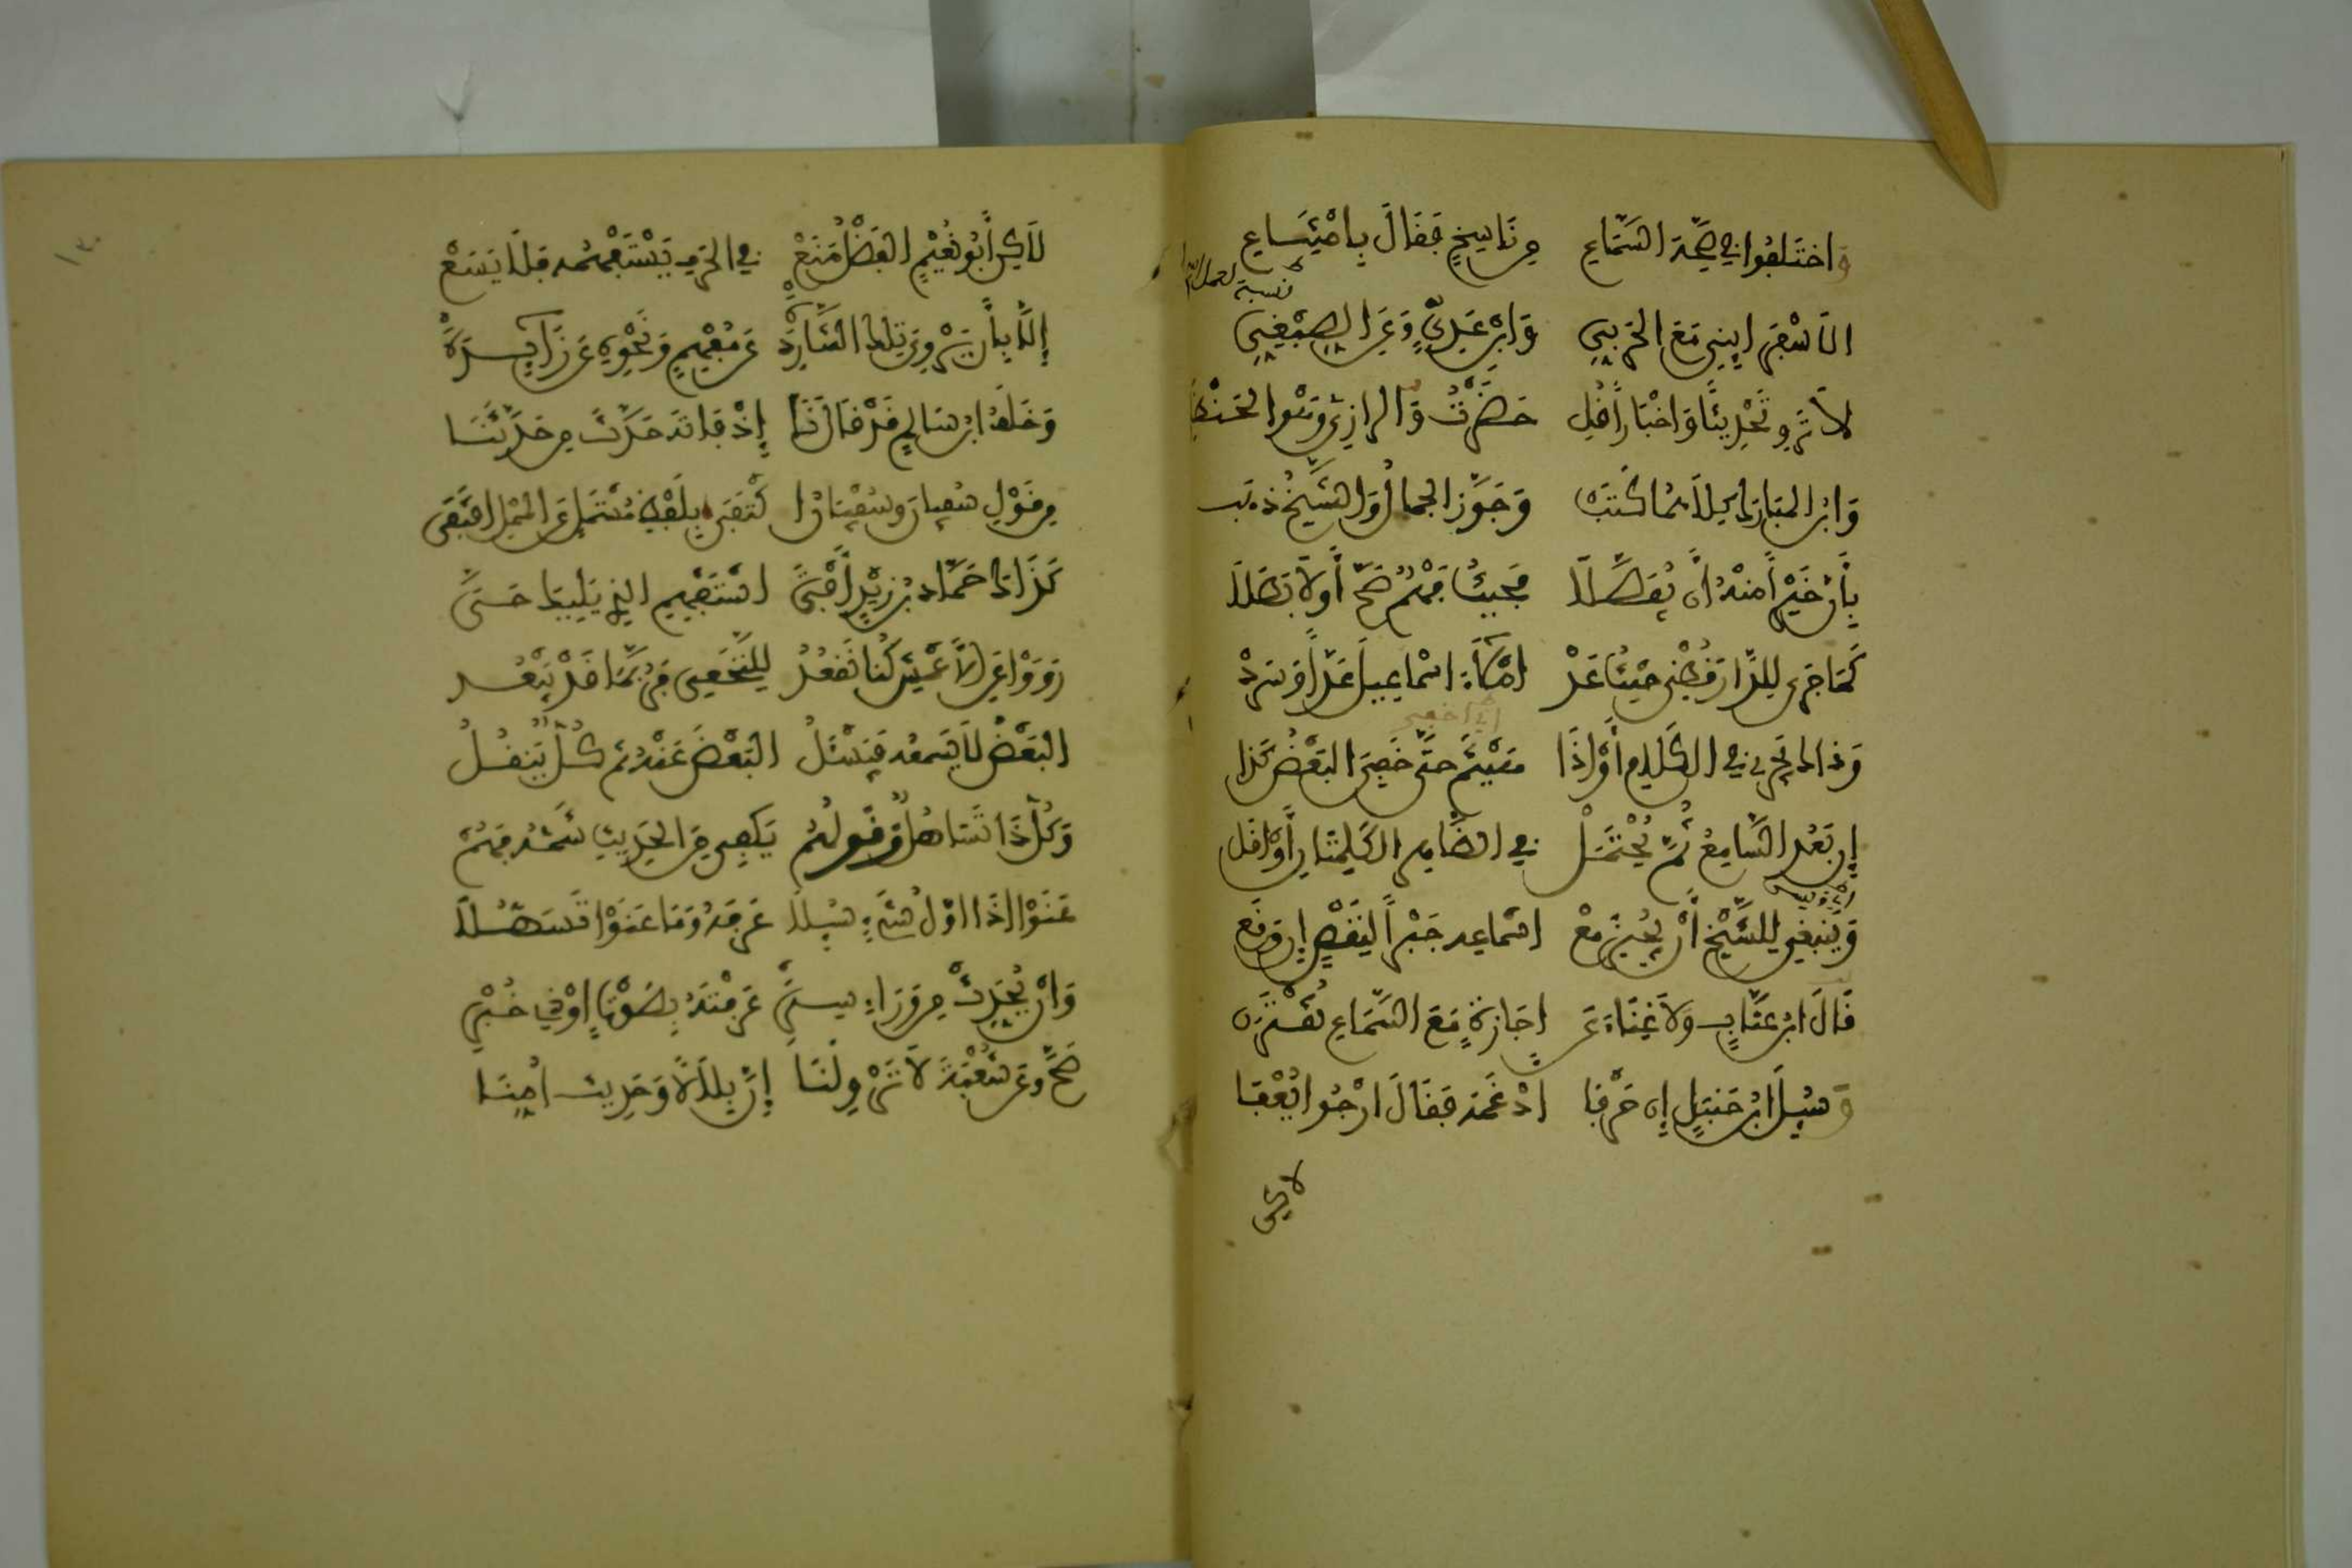 واختلفوا في صحة السماع من ناسخ فقال بامتناع
نسبة
الاسفرايني مع الحربي وابن عدي وعن الصبغي
لا ترو تحديثا واخبارا قل حضرت والرازي وهو الحنظلي
وابن المبارك كلاهما كتب وجوز الحمال والشيخ ذهب
بأن خيرا منه أن يفصلا فحيث فهم صح أولا بطلا
كما جرى للدارقطني حيث عد املاء اسماعيل عدا وسرد
وذاك يجري في الكلام أو اذا هينم حتى خفي البعض كذا
إن بعد السامع ثم يحتمل في الظاهر الكلمتان أو اقل
وينبغي للشيخ أن يجيز مع اسماعه جبرا لنقص إن وقع
قال ابن عتاب ولا غناء عن اجازة مع السماع تقترن
وسئل ابن حنبل إن حرفا ادغمه فقال ارجوا يعفا
لاكن
لاكن أبو نعيم الفضل منع في الحرف يستفهمه فلا يسع
إلا بأن يروي تلك الشاردة عن مفهم ونحوه عن زايدة
وخلف ابن سالم قد قال نا إذ فاته حدث من حدثنا
من قول سفيان وسفيان اكتفى بلفظ مستمل عن المملي اقتفى
كذاك حماد بن زيد أفتى استفهم الذي يليك حتى
رووا عن الاعمش كنا نقعد للنخعي فربما قد يبعد
البعض لا يسمعه فيسئل البعض عنه ثم كل ينقل
وكل ذا تساهل وقولهم يكفي من الحديث شمه فهم
عنوا اذا اول شيء سئلا عرفه وما عنوا تسهلا
وان يحدث من وراء ستر عرفته بصوت او ذي خبر
صح وعن شعبة لا ترو لنا إن بلالا وحديث امنا